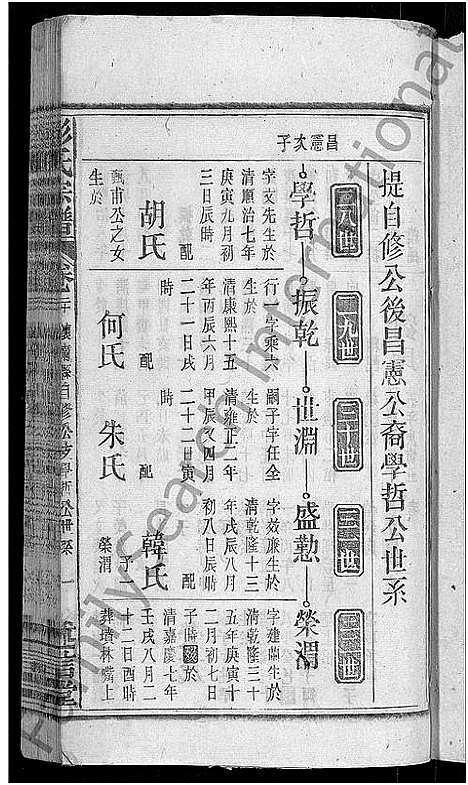 堤自修公後昌憲公裔學哲公世系
二八世
二九世
三十世
三一世
三二世
昌憲次子
學哲
振乾
世淵
盛懃
榮渭
字文先生於
清順治七年
庚寅九月初
三日辰時
配
胡氏
甄甫公之女
生於
行一字乘六
生於
清康熙十五
年丙辰六月
二十一日戌
時
配
何氏
嗣子字任全
生於
清雍正二年
甲辰又四月
二十二日寅
時
配
朱氏
字效廉生於
清乾隆十三
年戊辰八月
初八日辰時
配
韓氏
子二
榮渭
字建蘭生於
清乾隆三十
五年庚寅十
二月初七日
子時歿於
清嘉慶七年
壬戌八月二
十二日酉時
葬墳林嘴上
彭氏宗譜
Family Search International